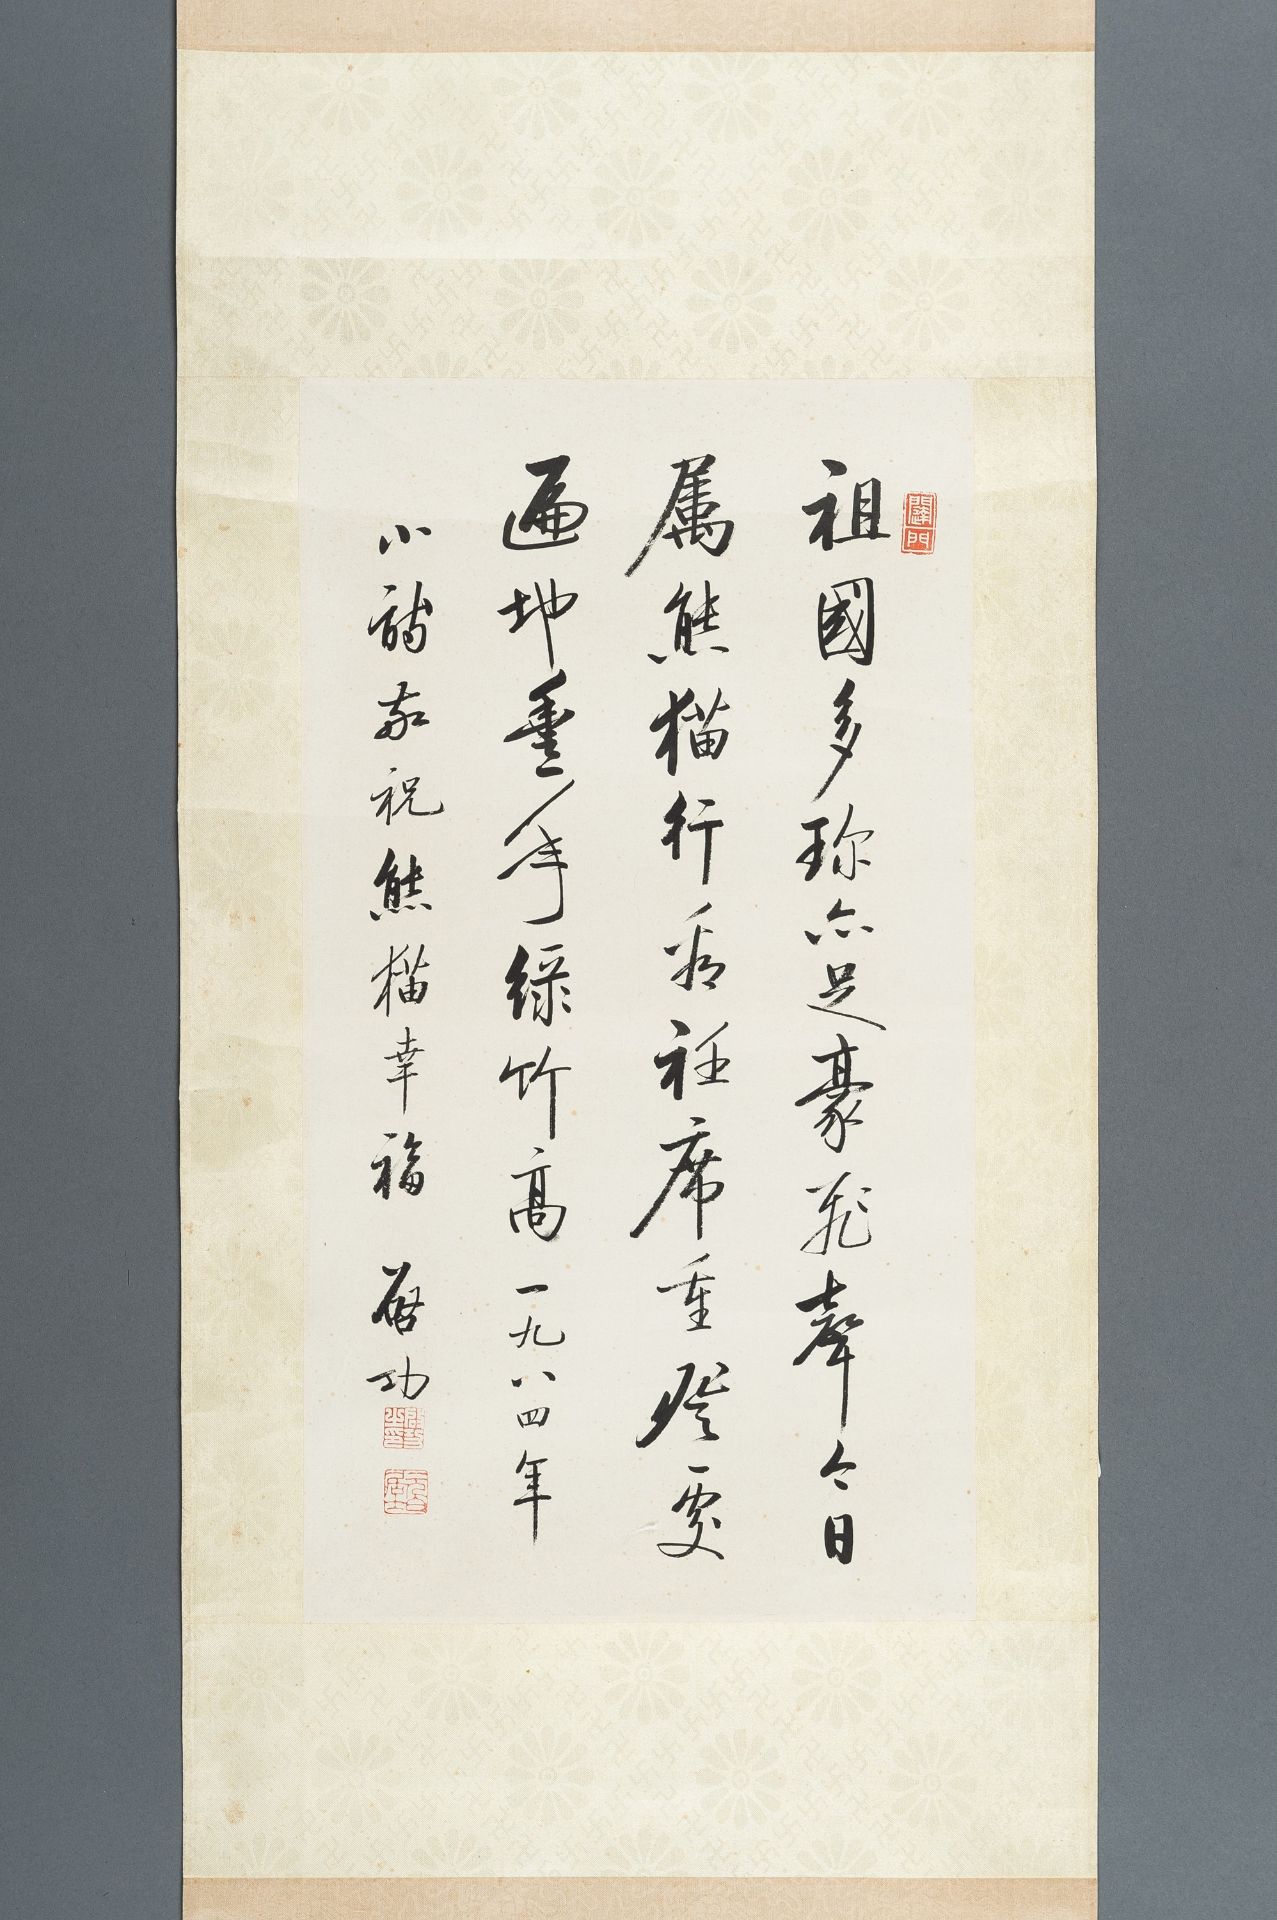 祖國多珍亦足豪飛聲今日
属熊猫行看衽席重登處
遍地垂垂綠竹高一九八四年
小詩敬祝熊猫幸福 啓功